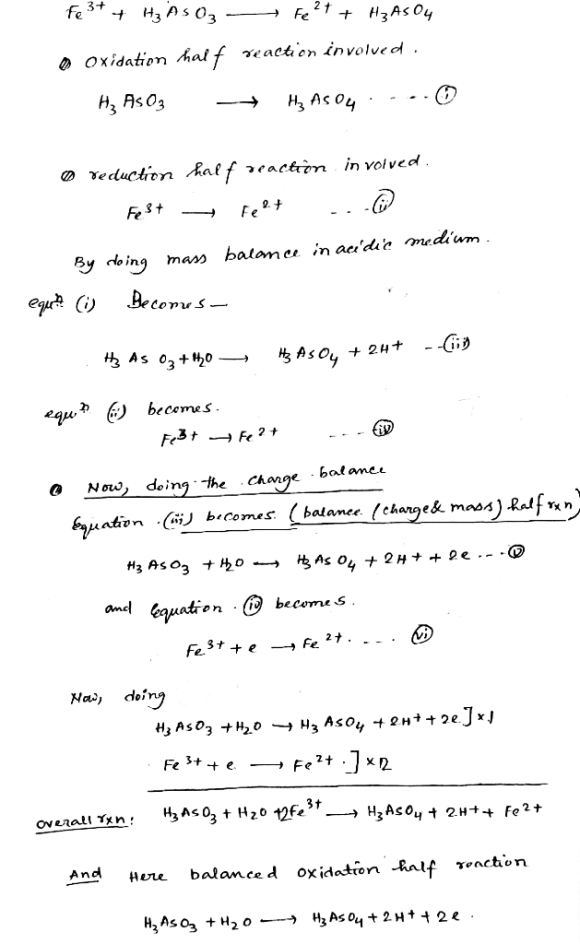 Fe³⁺ + H₃AsO₃ ⟶ Fe²⁺ + H₃AsO₄
Oxidation half reaction involved.
H₃AsO₃ ⟶ H₃AsO₄ . - - . . (i)
reduction half reaction involved.
Fe³⁺ ⟶ Fe²⁺ - - . (ii)
By doing mass balance in acidic medium.
equⁿ (i) Becomes —
H₃AsO₃ + H₂O ⟶ H₃AsO₄ + 2H⁺ - - (iii)
equⁿ (ii) becomes.
Fe³⁺ → Fe²⁺ - - - - (iv)
Now, doing the charge balance
Equation (iii) becomes. (balance (charge & mass) half rxn)
H₃AsO₃ + H₂O ⟶ H₃AsO₄ + 2H⁺ + 2e - - - (v)
and Equation. (iv) becomes.
Fe³⁺ + e ⟶ Fe²⁺. - - . (vi)
Now, doing
H₃AsO₃ + H₂O ⟶ H₃AsO₄ + 2H⁺ + 2e ] × 1
Fe³⁺ + e ⟶ Fe²⁺ . ] × 2
Overall rxn: H₃AsO₃ + H₂O + 2Fe³⁺ ⟶ H₃AsO₄ + 2H⁺ + Fe²⁺
And Here balanced oxidation half reaction
H₃AsO₃ + H₂O ⟶ H₃AsO₄ + 2H⁺ + 2e .